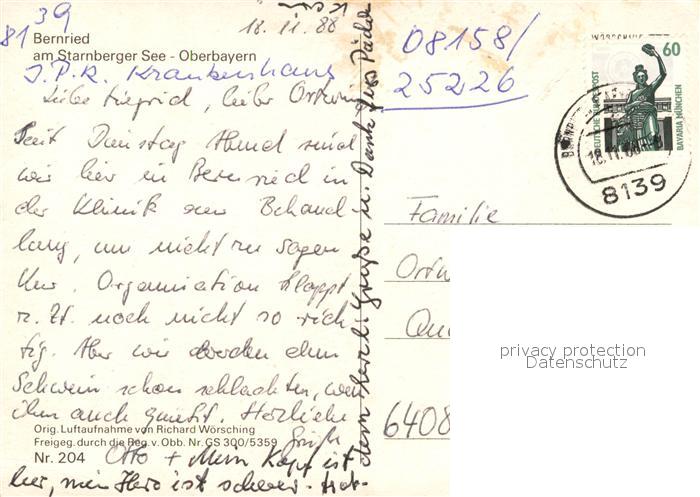 39
81
18.11.88
Bernried
am Starnberger See - Oberbayern
J.P.K. Krankenhaus
08158/
25226
Liebe lieber Ortwin
Seit Dienstag Abend sind
wir hier in Bernried in
der Klinik zur Behand-
lung, um nicht zu sagen
Kur. Organisation klappt
z. Zt. noch nicht so rich-
tig. Aber wir werden dem
Schwein schon schlachten, wenn
ihm auch quiekt. Herzliche
Grüße
Otto + Mein Kopf ist
leer, mein Herz ist schwer - trotz-
dem herzl. Grüße u. Dank fürs Päckchen
Orig. Luftaufnahme von Richard Wörsching
Freigeg. durch die Reg. v. Obb. Nr. GS 300/5359
Nr. 204
WÖRSCHING
60
DEUTSCHE BUNDESPOST
BAVARIA MÜNCHEN
18.11.88
8139
Familie
Ortw
6408
privacy protection
Datenschutz